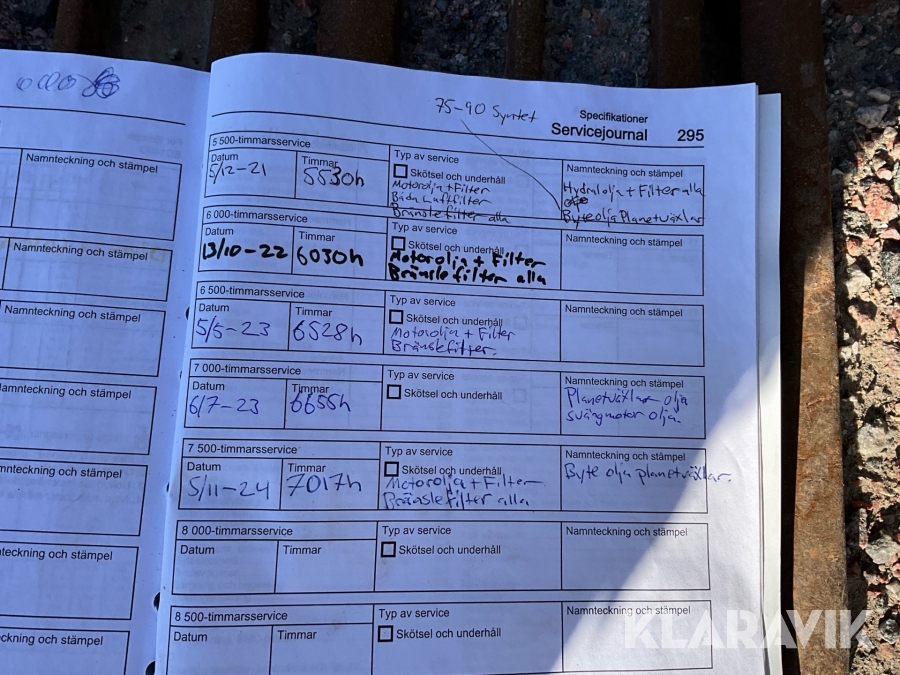 75-90 Syntet
Specifikationer
Servicejournal 295
Namnteckning och stämpel
Namnteckning och stämpel
Namnteckning och stämpel
Namnteckning och stämpel
mnteckning och stämpel
nteckning och stämpel
ckning och stämpel
5 500-timmarsservice
Datum Timmar Typ av service Namnteckning och stämpel
5/12-21 5530h Skötsel och underhåll
Motorolja+Filter Hydralolja+Filter alla
Båda Luftfilter
Bränslefilter alla Byte olja Planetväxlar
6 000-timmarsservice
Datum Timmar Typ av service Namnteckning och stämpel
13/10-22 6030h Skötsel och underhåll
Motorolja + Filter
Bränslefilter alla
6 500-timmarsservice
Datum Timmar Typ av service Namnteckning och stämpel
5/5-23 6528h Skötsel och underhåll
Motorolja + Filter
Bränslefilter.
7 000-timmarsservice
Datum Timmar Typ av service Namnteckning och stämpel
6/7-23 6655h Skötsel och underhåll Planetväxlar olja
svängmotor olja.
7 500-timmarsservice
Datum Timmar Typ av service Namnteckning och stämpel
5/11-24 7017h Skötsel och underhåll Byte olja planetväxlar.
Motorolja + Filter
Bränslefilter alla
8 000-timmarsservice
Datum Timmar Typ av service Namnteckning och stämpel
Skötsel och underhåll
8 500-timmarsservice
Datum Timmar Typ av service Namnteckning och stämpel
Skötsel och underhåll
KLARAVIK